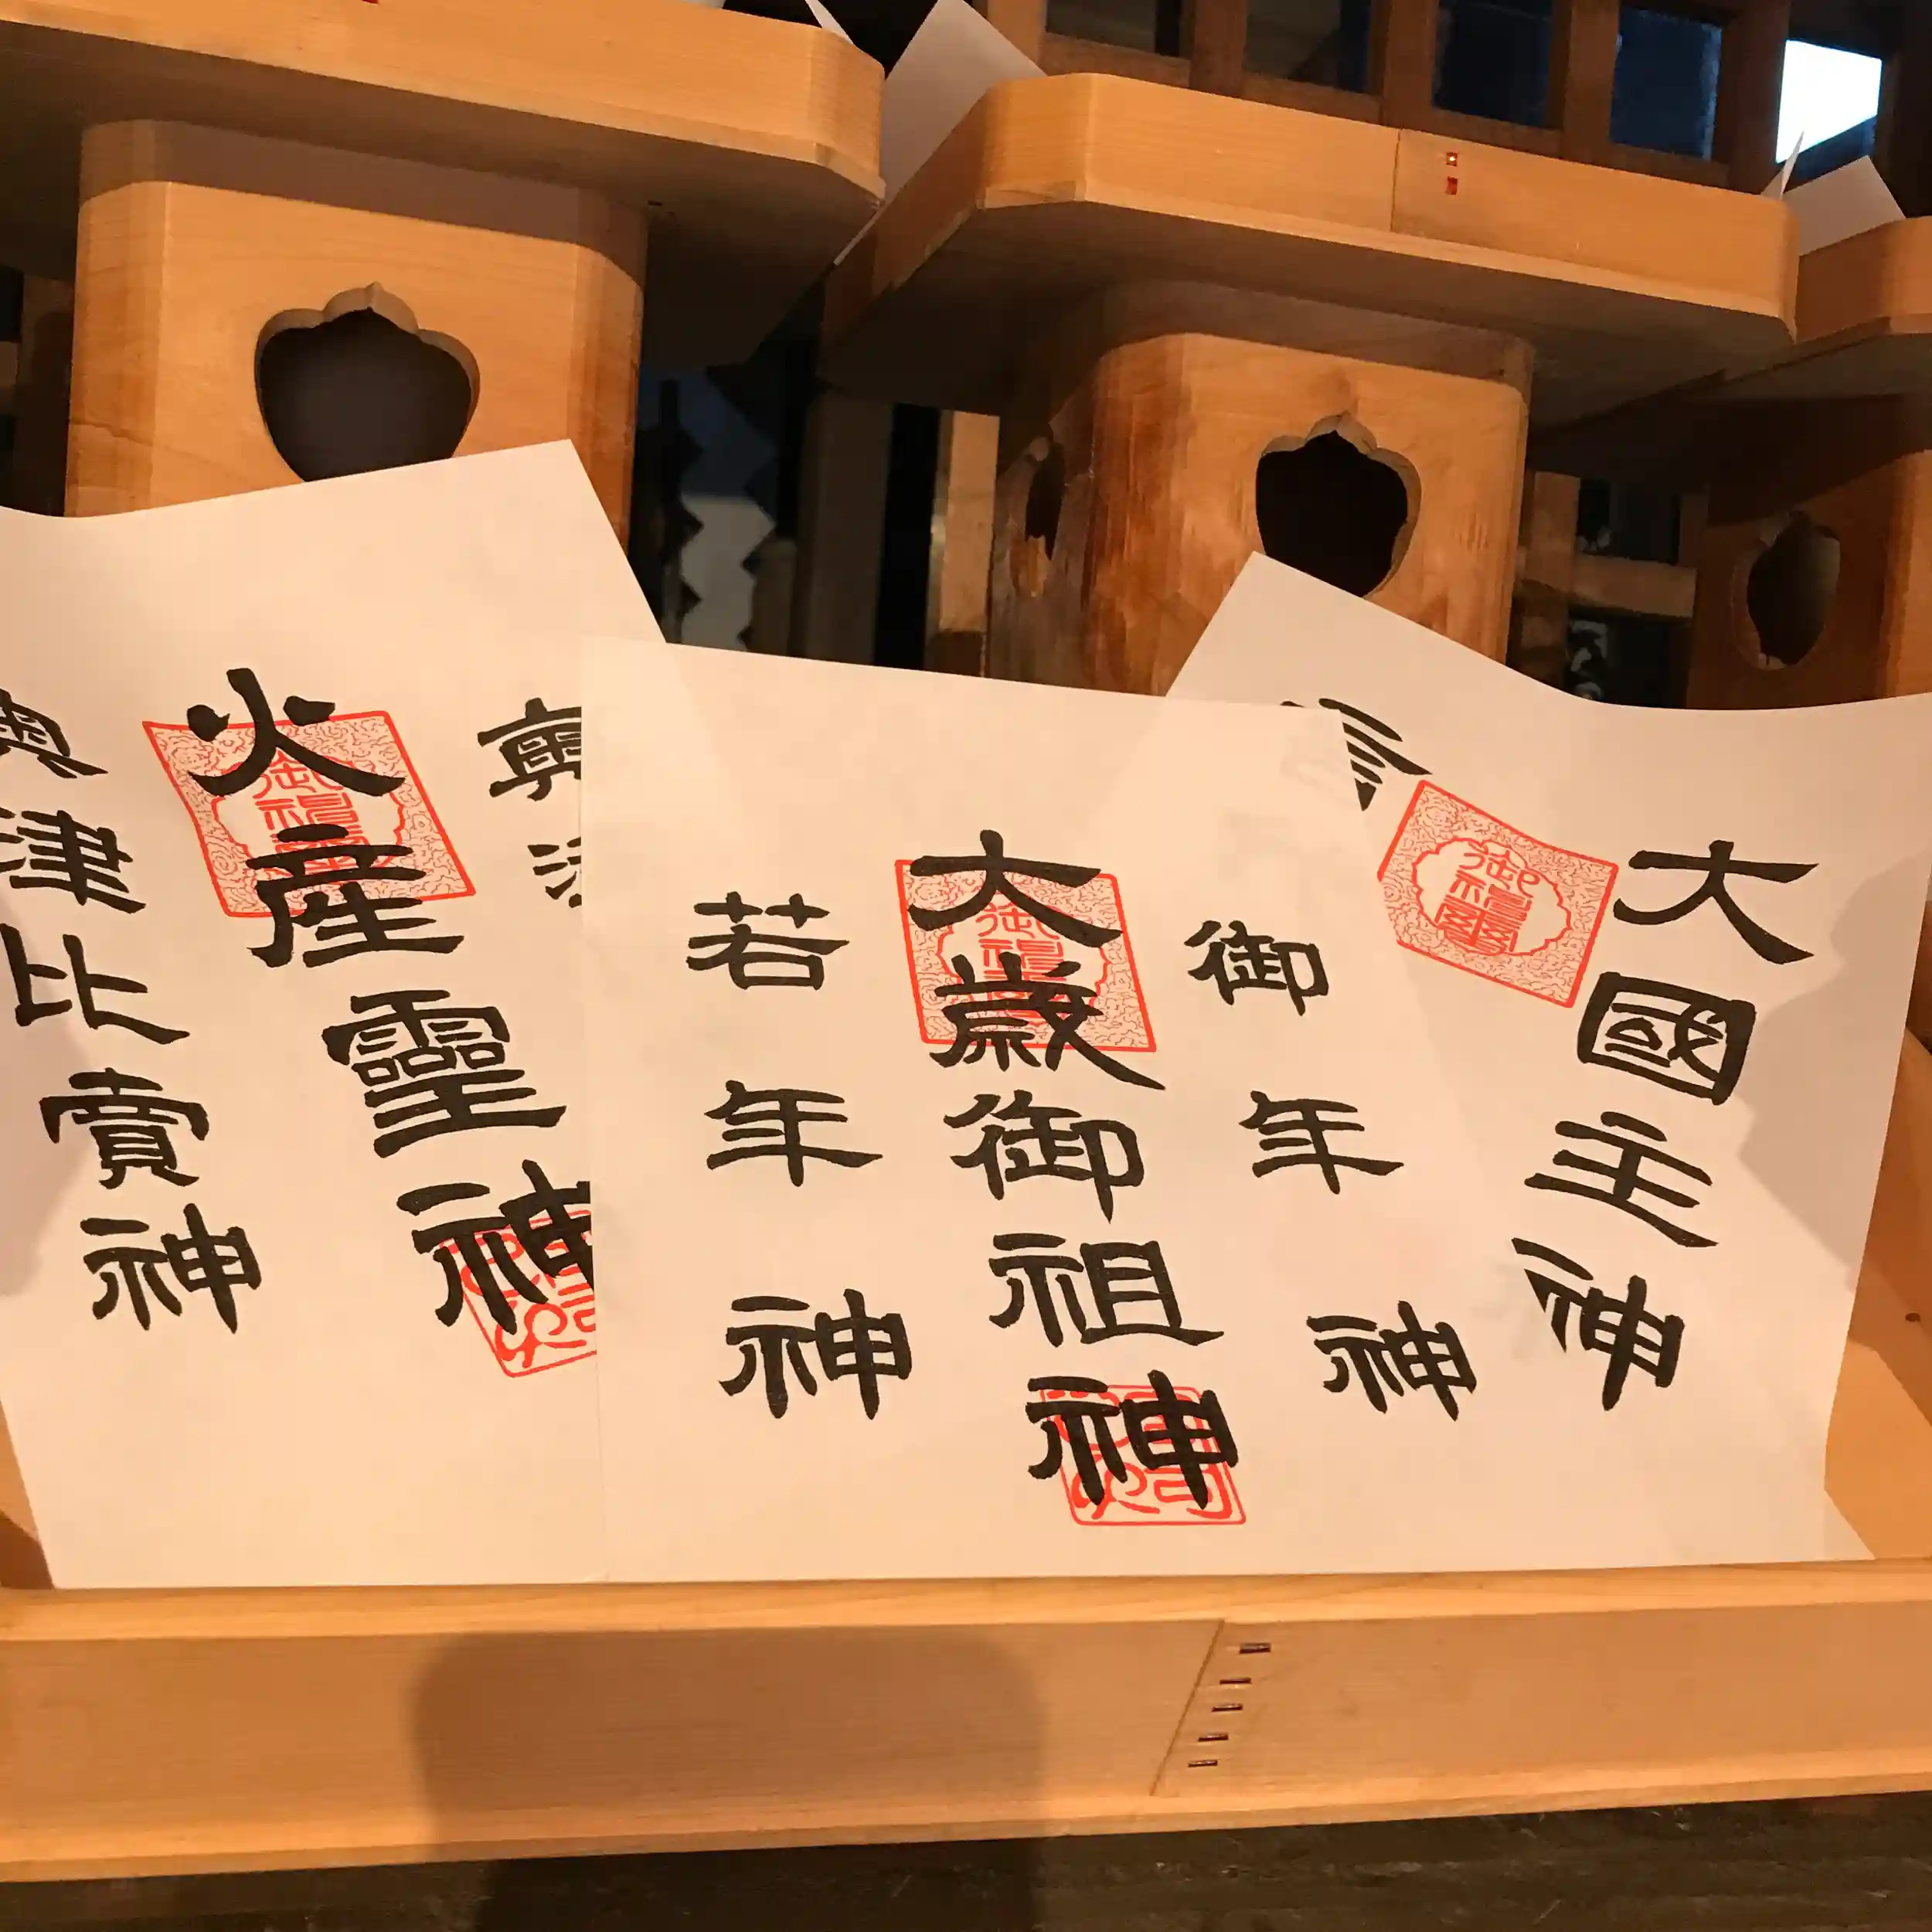 大國主神
御年神
大歳御祖神
若年神
奥
火産霊神
奥津比賣神